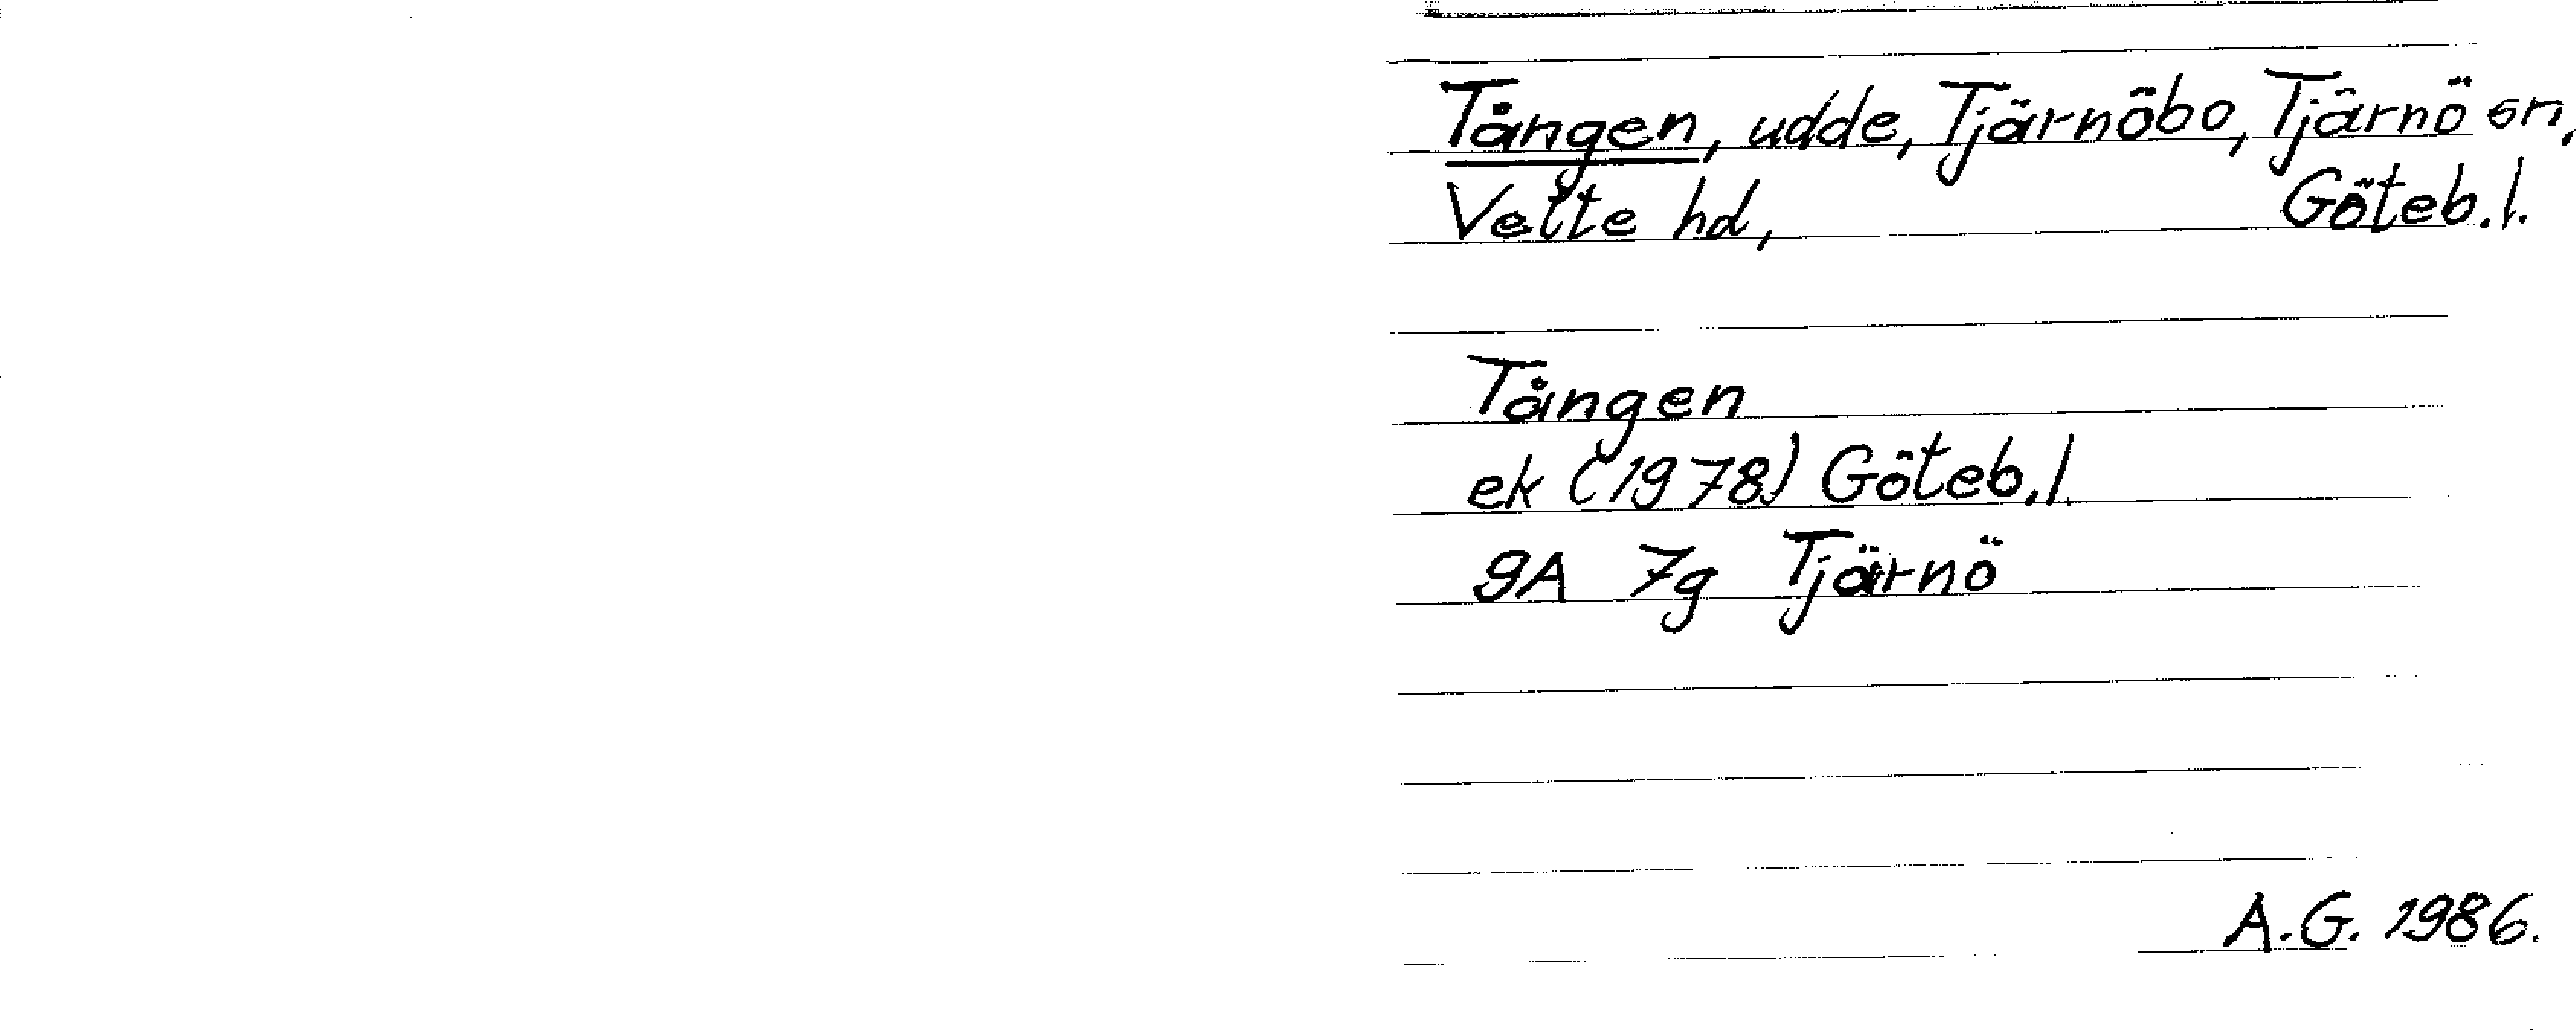 Tången, udde, Tjärnöbo, Tjärnö sn,
Vette hd, Göteb.l.
Tången
ek (1978) Göteb.l.
9A 7g Tjärnö
A.G. 1986.